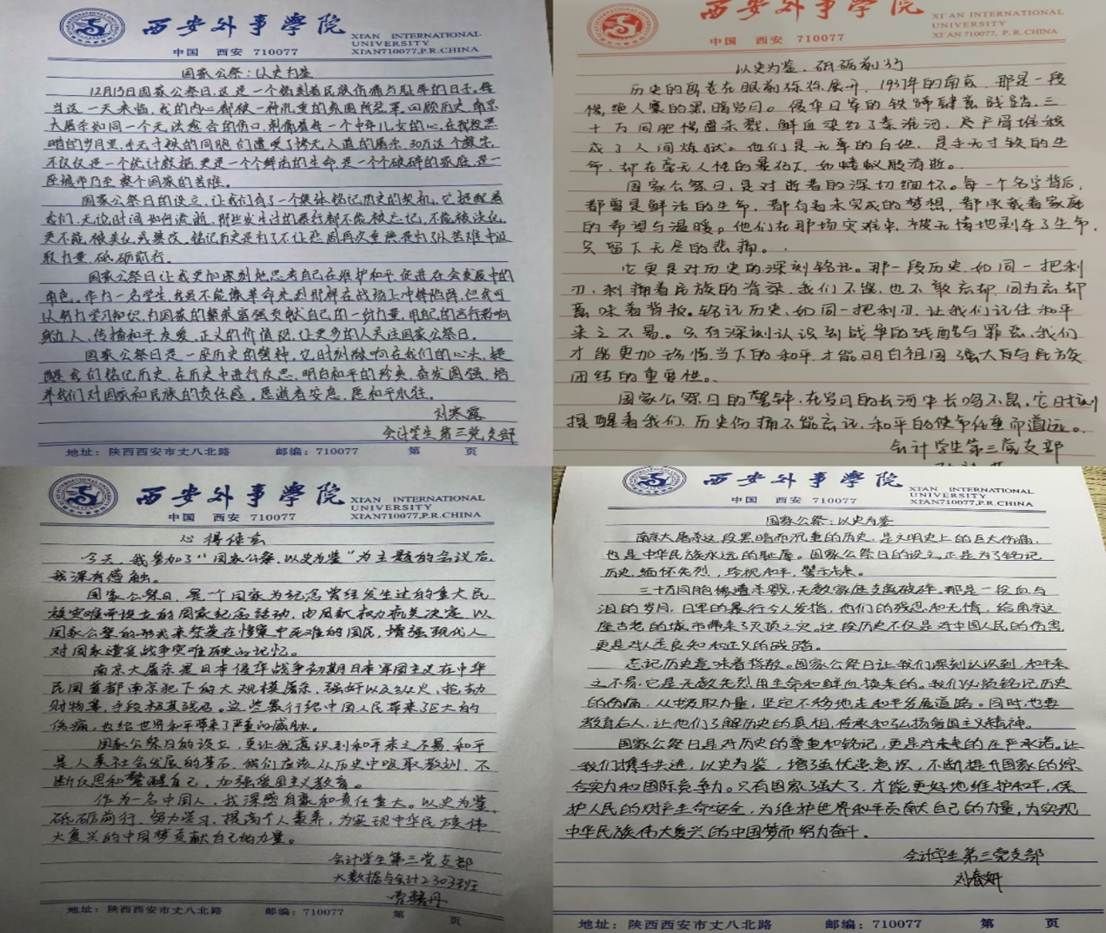 西安外事学院
XI'AN INTERNATIONAL
UNIVERSITY
中国 西安 710077
XIAN710077,P.R.CHINA
国家公祭:以史为鉴
12月13日国家公祭日,这是一个镌刻着民族伤痛与耻辱的日子。每
当这一天来临,我的内心都被一种沉重的氛围所笼罩,回顾历史,南京
大屠杀如同一个无法愈合的伤口,刺痛着每一个中华儿女的心,在那段黑
暗的岁月里,千千万万的同胞们遭受了惨无人道的屠杀,30万这个数字,
不仅仅是一个统计数据,更是一个个鲜活的生命,是一个个破碎的家庭,是一
座城市乃至整个国家的苦难。
国家公祭日的设立,让我们有了一个集体铭记历史的契机,它提醒着
我们,无论时间如何流逝,那些发生过的暴行都不能被忘记,不能被淡化,
更不能被美化或篡改。铭记历史是为了不让悲剧再次重演,是为了从苦难中汲
取力量,砥砺前行。
国家公祭日让我更加深刻地思考自己在维护和平促进社会发展中的
角色。作为一名学生,我虽不能像革命先烈那样在战场上冲锋陷阵,但我可
以努力学习知识,为国家的繁荣富强贡献自己的一份力量,用自己的言行影响
身边人,传播和平友爱,正义的价值观,让更多的人关注国家公祭日。
国家公祭日是一座历史的警钟,它时刻敲响在我们的心头,提
醒我们铭记历史,在历史中进行反思,明白和平的珍贵,奋发图强,培
养我们对国家和民族的责任感,愿逝者安息,愿和平永驻。
刘寒露
会计学生第三党支部
地址:陕西西安市丈八北路 邮编:710077 第 页
西安外事学院
XI'AN INTERNATIONAL
UNIVERSITY
中国 西安 710077
XI'AN 710077, P.R.CHINA
以史为鉴,砥砺前行
历史的画卷在眼前徐徐展开,1937年的南京,那是一段
惨绝人寰的黑暗岁月。侵华日军的铁蹄肆意践踏,三
十万同胞惨遭杀戮,鲜血染红了秦淮河,尸尸屑堆积
成了人间炼狱。他们是无辜的百姓,是手无寸铁的生
命,却在毫无人性的暴行下,如蝼蚁般消逝。
国家公祭日,是对逝者的深切缅怀。每一个名字背后,
都曾是鲜活的生命,都有着未完成的梦想,都承载着家庭
的希望与温暖。他们在那场灾难中,被无情地剥夺了生命,
只留下无尽的悲痛。
它更是对历史的深刻铭记。那一段历史,如同一把利
刃,刺痛着民族的脊梁,我们不该,也不敢忘却,因为忘却
意味着背叛。铭记历史,如同一把利刃,让我们记住和平
来之不易。只有深刻认识到战争的残酷与罪恶,我们
才能更加珍惜当下的和平,才能明白祖国强大与民族
团结的重要性。
国家公祭日的警钟,在岁月的长河中长鸣不息,它时刻
提醒着我们,历史伤痛不能忘记,和平的使命任重而道远。
会计学生第三党支部
西安外事学院
XI'AN INTERNATIONAL
UNIVERSITY
中国 西安 710077
XIAN710077,P.R.CHINA
心得体会
今天,我参加了“国家公祭,以史为鉴”为主题的会议后,
我深有感触。
国家公祭日,是一个国家为纪念曾经发生过的重大民
族灾难而设立的国家纪念活动,由国家权力机关决定,以
国家公祭的形式来祭奠在惨案中死难的国民,增强现代人
对国家遭受战争灾难历史的记忆。
南京大屠杀是日本侵华战争初期日本军国主义在中华
民国首都南京犯下的大规模屠杀,强奸以及纵火,抢劫
财物等,手段极其残忍。这些暴行给中国人民带来了巨大的
伤痛,也给世界和平带来了严重的威胁。
国家公祭日的设立,更让我意识到和平来之不易,和平
是人类社会发展的基石,我们应该从历史中吸取教训,不
断反思和警醒自己,加强爱国主义教育。
作为一名中国人,我深感自豪和责任重大。以史为鉴
砥砺前行,努力学习,提高个人素养,为实现中华民族伟
大复兴的中国梦贡献自己的力量。
会计学生第三党支部
大数据与会计2303班
地址:陕西西安市丈八北路 邮编:710077 第 页
西安外事学院
XI'AN INTERNATIONAL
UNIVERSITY
中国 西安 710077
XIAN710077,P.R.CHINA
国家公祭:以史为鉴
南京大屠杀这段黑暗而沉重的历史,是文明史上的巨大伤痛,
也是中华民族永远的耻辱。国家公祭日的设立,正是为了铭记
历史,缅怀先烈,珍视和平,警示未来。
三十万同胞惨遭杀戮,无数家庭支离破碎,那是一段血与
泪的岁月,日军的暴行令人发指,他们的残忍和无情,给南京这
座古老的城市带来了灭顶之灾。这段历史不仅是对中国人民的伤害,
更是对人类良知和正义的践踏。
忘记历史意味着背叛。国家公祭日让我们深刻认识到,和平来
之不易,它是无数先烈用生命和鲜血换来的。我们必须铭记历史
的伤痛,从中汲取力量,坚定不移地走和平发展道路。同时,也要
教育后人,让他们了解历史的真相,传承和弘扬爱国主义精神。
国家公祭日是对历史的尊重和铭记,更是对未来的庄严承诺。让
我们携手共进,以史为鉴,增强忧患意识,不断提升国家的综
合实力和国际竞争力。只有国家强大了,才能更好地维护和平,保
护人民的财产生命安全,为维护世界和平贡献自己的力量,为实现
中华民族伟大复兴的中国梦而努力奋斗。
会计学生第三党支部
刘春妍
地址:陕西西安市丈八北路 邮编:710077 第 页